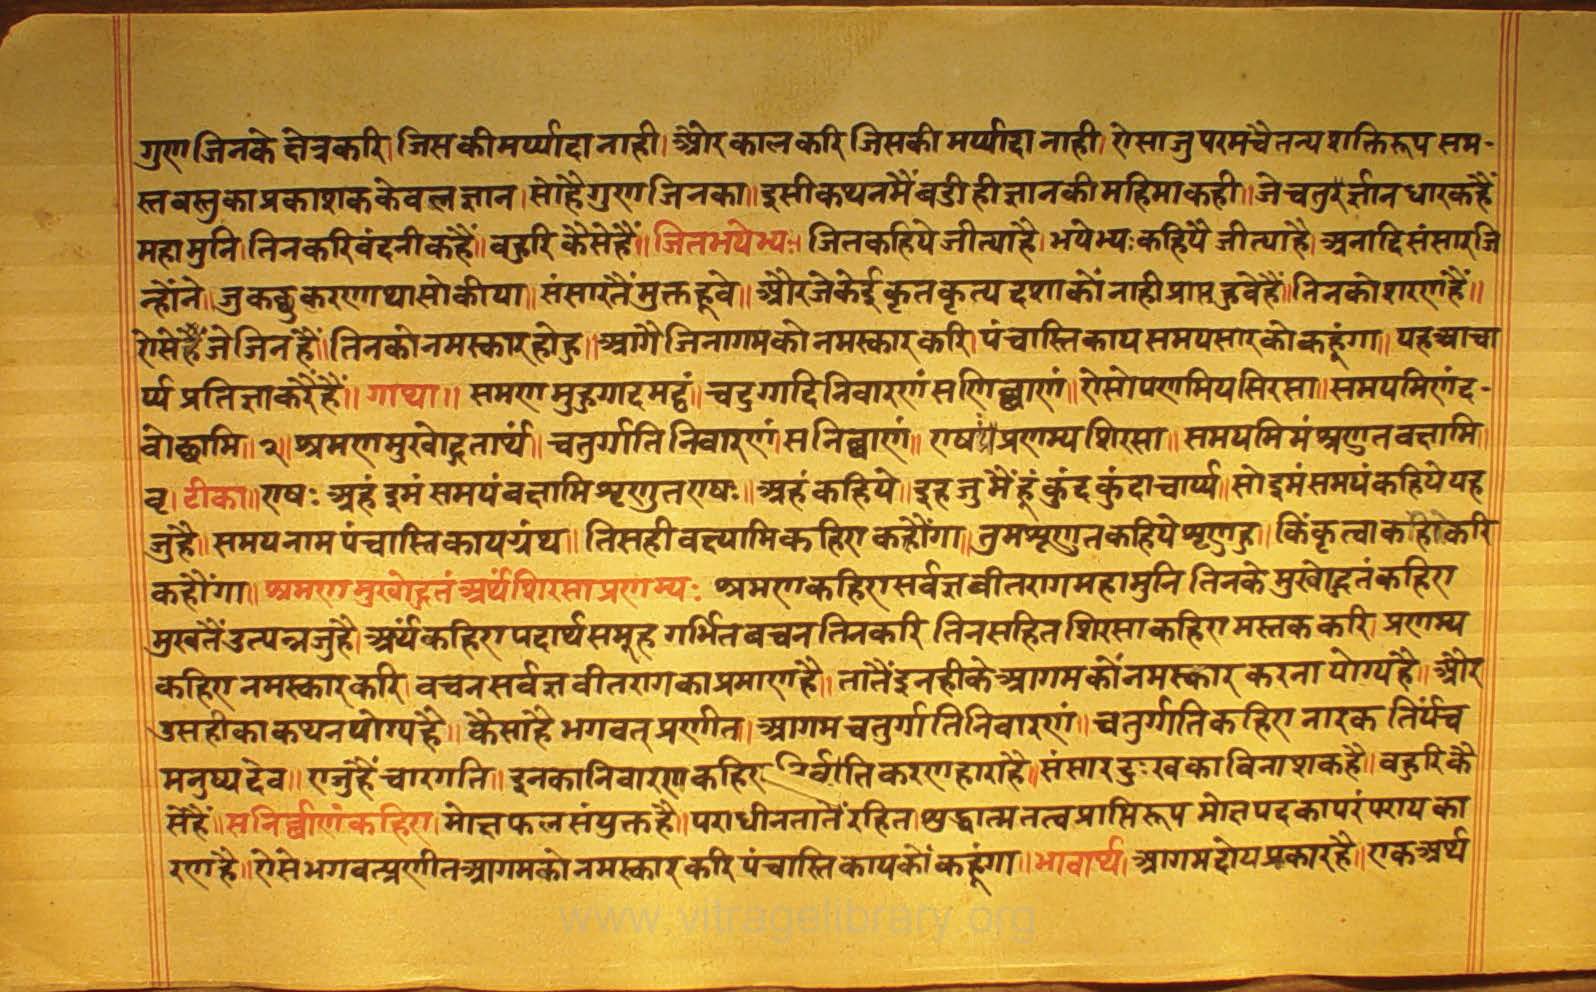 गुण जिनके क्षेत्रकरि। जिसकी मर्य्यादा नाही। और काल करि जिसकी मर्य्यादा नाही। ऐसा जु परम चैतन्य शक्तिरूप सम-
स्त वस्तु का प्रकाशक केवल ज्ञान। सो है गुण जिनका॥ इसी कथनमैं बडी ही ज्ञान की महिमा कही॥ जे चतुर ज्ञान धारक हैं
महा मुनि। तिन करि वंदनीक हैं॥ बहुरि कैसे हैं॥ जितभयेभ्यः। जित कहिये जीत्या है। भयेभ्यः कहिये जीत्या है। अनादि संसार जि
न्होंने॥ जु कछु करणा था सो कीया॥ संसारतैं मुक्त हूवे॥ और जे केई कृतकृत्य दशाकों नाही प्राप्त हुवे हैं॥ तिनको शरण हैं॥
ऐसे हैं जे जिन हैं॥ तिनको नमस्कार होहु॥ आगै जिनागमको नमस्कार करि। पंचास्तिकाय समयसार को कहूंगा॥ यह आचा
र्य्य प्रतिज्ञा करै हैं॥ गाथा॥ समण मुहुगादमट्ठं॥ चदुग्गादि निवारणं सणिव्वाणं॥ ऐसो पणमिय सिरसा॥ समयमिणंद-
वोछामि॥२॥ श्रमण मुखोद्गतार्थ्यं॥ चतुर्ग्गाति निवारणं सनिर्व्वाणं॥ एष प्रणम्य शिरसा॥ समयमिमं श्रणुत वक्षामि॥
वृ। टीका॥ एषः अहं इमं समयं वक्षामि शृणुत एषः॥ अहं कहिये॥ इह जु मैं हूं कुंद कुंदाचार्य्य॥ सो इमं समयं कहिये यह
जु है॥ समय नाम पंचास्तिकाय ग्रंथ॥ तिसही वक्ष्यामि कहिए कहौंगा॥ तुम शृणुत कहिये शृणहु॥ किं कृत्वा करि
कहौंगा॥ श्रमण मुखोद्गतं अर्थं शिरसा प्रणम्यः श्रमण कहिए सर्वज्ञ वीतराग महा मुनि तिनके मुखोद्गतं कहिए
मुखतैं उत्पन्न जु है। अर्थ कहिए पदार्थ समूह गर्भित वचन तिन करि तिन सहित शिरसा कहिए मस्तक करि। प्रणम्य
कहिए नमस्कार करि। वचन सर्वज्ञ वीतराग का प्रमाण है॥ तातैं इनहीके आगमकों नमस्कार करना योग्य है॥ और
उसही का कथन योग्य है॥ कैसा है भगवत् प्रणीत। आगम चतुर्गाति निवारणं॥ चतुर्ग्गाति कहिए नारक तिर्यंच
मनुष्य देव॥ ए जु हैं चार गति॥ इनका निवारण कहिए करणहारा है॥ संसार दुःख का विनाशक है॥ बहुरि कै
से है॥ सनिर्व्वाणं कहिए। मोक्ष फल संयुक्त है॥ पराधीनतातें रहित। शुद्धात्म तत्व प्राप्तिरूप मोक्ष पद का परंपराय का
रण है॥ ऐसे भगवत्प्रणीत आगमको नमस्कार करि पंचास्तिकायकों कहूंगा॥ भावार्थ। आगम दोय प्रकार है॥ एक अर्थ
www.vitragelibrary.org